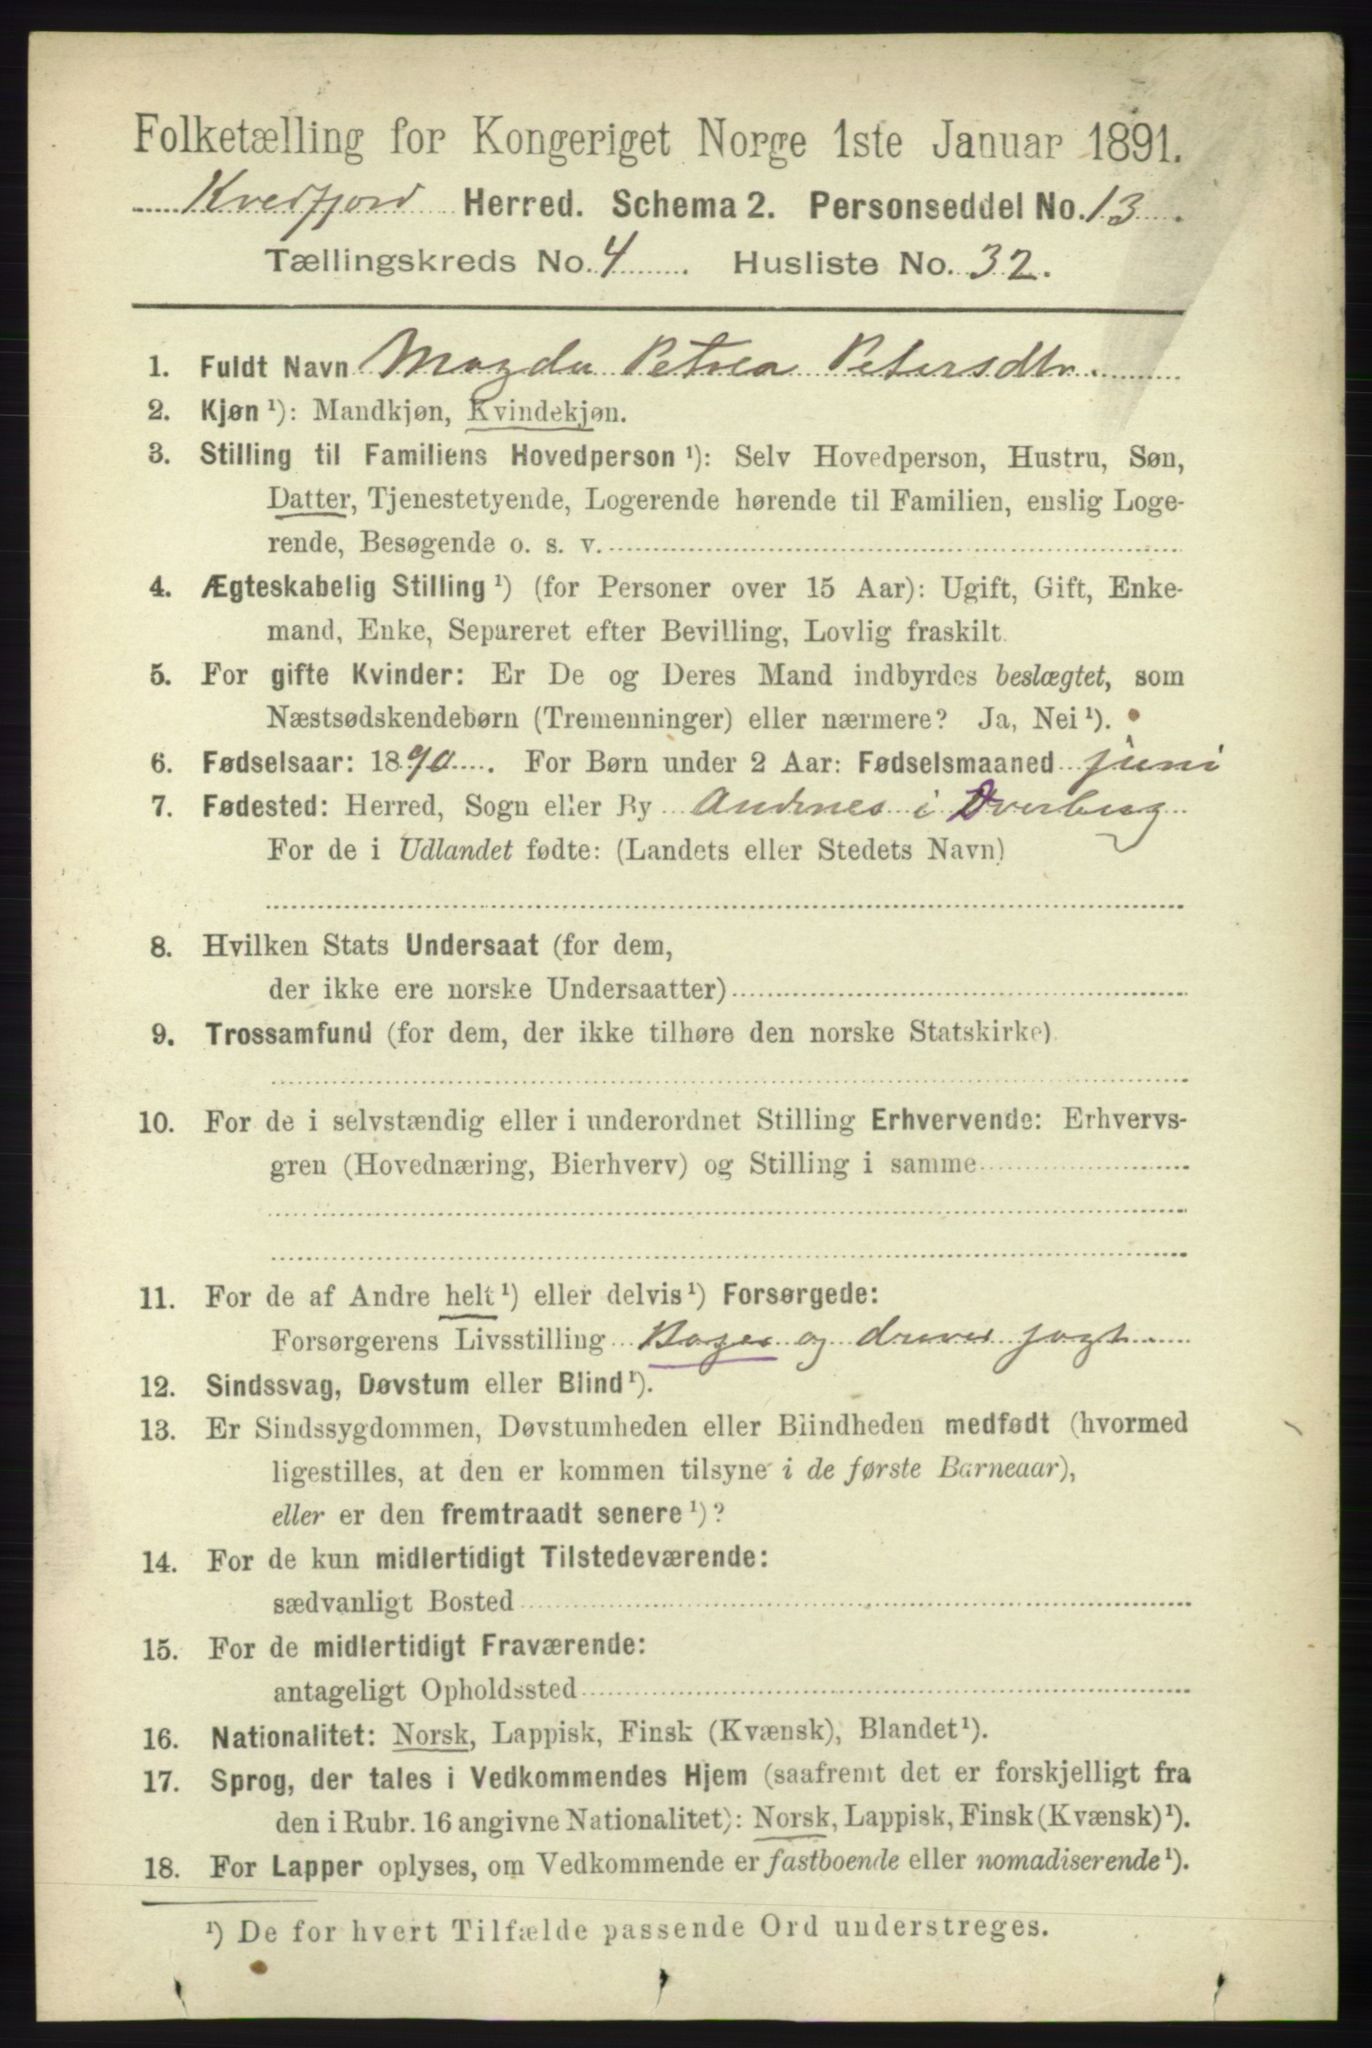 Folketælling for Kongeriget Norge 1ste Januar 1891.
Kvedfjord Herred. Schema 2. Personseddel No. 13.
Tællingskreds No. 4. Husliste No. 32.
1. Fuldt Navn Magda Petrea Petersdtr.
2. Kjøn ¹): Mandkjøn, Kvindekjøn.
3. Stilling til Familiens Hovedperson ¹): Selv Hovedperson, Hustru, Søn,
Datter, Tjenestetyende, Logerende hørende til Familien, enslig Loge-
rende, Besøgende o. s. v.
4. Ægteskabelig Stilling ¹) (for Personer over 15 Aar): Ugift, Gift, Enke-
mand, Enke, Separeret efter Bevilling, Lovlig fraskilt.
5. For gifte Kvinder: Er De og Deres Mand indbyrdes beslægtet, som
Næstsødskendebørn (Tremenninger) eller nærmere? Ja, Nei ¹).
6. Fødselsaar: 1890. For Børn under 2 Aar: Fødselsmaaned juni
7. Fødested: Herred, Sogn eller By Andenes i Dverberg
For de i Udlandet fødte: (Landets eller Stedets Navn)
8. Hvilken Stats Undersaat (for dem,
der ikke ere norske Undersaatter)
9. Trossamfund (for dem, der ikke tilhøre den norske Statskirke)
10. For de i selvstændig eller i underordnet Stilling Erhvervende: Erhvervs-
gren (Hovednæring, Bierhverv) og Stilling i samme
11. For de af Andre helt ¹) eller delvis ¹) Forsørgede:
Forsørgerens Livsstilling Bager og driver jagt.
12. Sindssvag, Døvstum eller Blind ¹).
13. Er Sindssygdommen, Døvstumheden eller Blindheden medfødt (hvormed
ligestilles, at den er kommen tilsyne i de første Barneaar),
eller er den fremtraadt senere ¹)?
14. For de kun midlertidigt Tilstedeværende:
sædvanligt Bosted
15. For de midlertidigt Fraværende:
antageligt Opholdssted
16. Nationalitet: Norsk, Lappisk, Finsk (Kvænsk), Blandet ¹).
17. Sprog, der tales i Vedkommendes Hjem (saafremt det er forskjelligt fra
den i Rubr. 16 angivne Nationalitet): Norsk, Lappisk, Finsk (Kvænsk) ¹).
18. For Lapper oplyses, om Vedkommende er fastboende eller nomadiserende ¹).
¹) De for hvert Tilfælde passende Ord understreges.